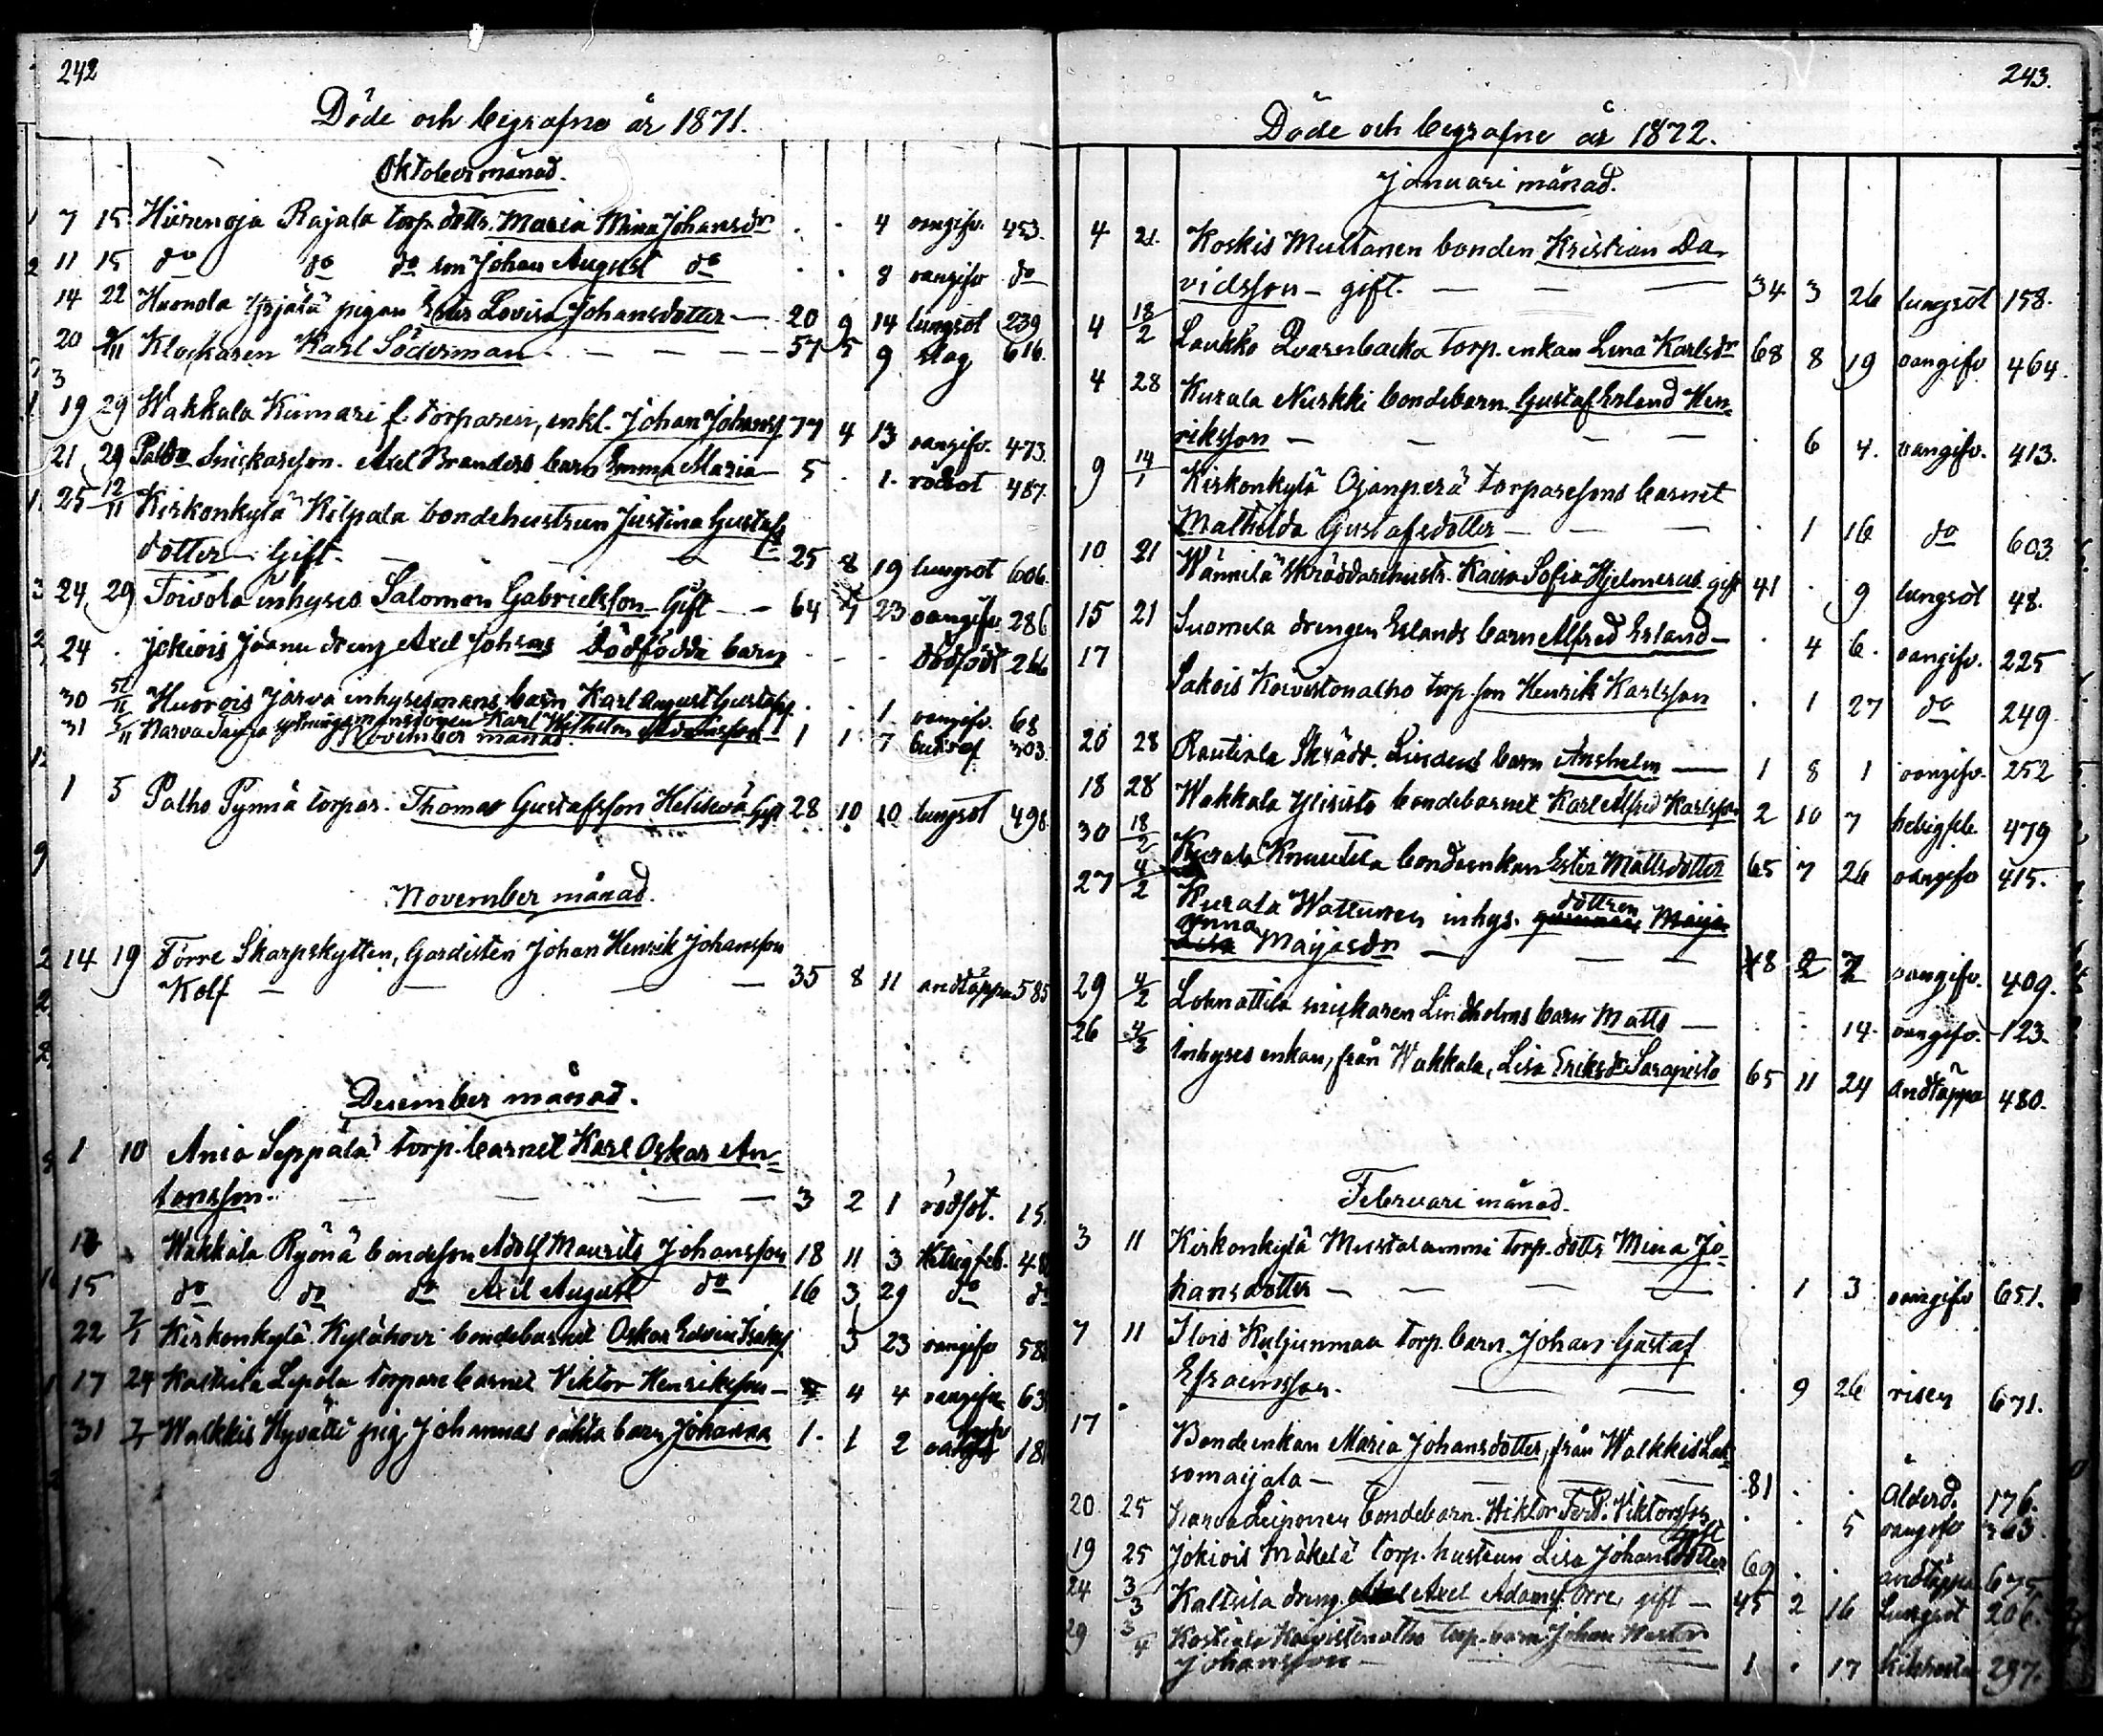 242
Döde och begrafne år 1871.
Oktober månad.
7 15 Hiirenoja Rajala torp. dottr. Maria Mina Johansdr . . 4 oangifv. 453.
11 15 do do do son Johan August do . . 8 oangifv do
14 22 Huonola Yrjälä pigan Ester Lovisa Johansdotter — 20 9 14 lungsot 239
20 5/11 Klockaren Karl Söderman — — — — 57 5 9 slag 616.
19 29 Wahkala Kiimari f. torparen, enkl. Johan Johanss. 77 4 13 oangifv. 473.
21 29 Palho Snickareson. Axel Branders barn Emma Maria — 5 . 1. rödsot 487.
25 12/11 Kirkonkylä Kilpala bondehustrun Justina Gustafs
dotter — Gift. — 25 8 19 lungsot 606.
24 29 Toivola inhyses Salomon Gabrielsson — Gift — 64 7 23 oangifv. 286
24 . Jokiois Jaanu dreng Axel Johsons Dödfödda barn . - - dödfödt 266
30 5/11 Huorois Jarva inhysesmans barn Karl August Gustafss. . . 1 oangifv. 68
31 5/11 Karl Wilhelm Adamsson 1 1 7 303.
November månad.
1 5 Palho Pynnä torpar. Thomas Gustafsson Gift 28 10 10 lungsot 498
November månad.
14 19 Förre Skarpskytten, Gardisten Johan Henrik Johansson
Kolf — — — — 35 8 11 andtäppa 585
December månad.
1 10 Anio Seppälä torp. barnet Karl Oskar An-
tonsson. — — — — 3 2 1 rödsot. 15.
Wahkala Ryönä bondeson Adolf Maurits Johansson 18 11 3 Hetsigfeb. 48
15 do do do Axel August do 16 3 29 do do
22 7/1 Kirkonkylä Kylähovi bondebarnet Oskar Edvin Isakss. 3 23 oangifv 58
17 24 Kaltsila Lepola torpare barnet Viktor Henriksson — 4 4 oangifv. 63
31 7/1 Walkkis Hyvätti pig. Johannas oäkta barn Johanna 1. 1 2 181
243.
Döde och begrafne år 1872.
Januari månad.
4 21. Koskis Multanen bonden Kristian Da-
vidsson — gift. — — — 34 3 26 lungsot 158.
4 18/2 Laukko Qvarnbacka torp. enkan Lena Karlsdr 68 8 19 oangifv 464.
4 28 Kurala Nurkki bondebarn. Gustaf Erland Hen-
riksson — — — — . 6 4. oangifv. 413.
9 14/1 Kirkonkylä Ojanperä torparesons barnet
Mathilda Gustafsdotter — — — . 1 16 do 603
10 21 Wännilä Skräddarehustr. Kaisa Sofia Hjelmerus. gift 41 . 9 lungsot 48.
15 21 Suomela drengen Erlands barn Alfred Erland — . 4 6. oangifv. 225
17 Sakois Koivistonalho torp. son Henrik Karlsson . 1 27 do 249.
20 28 Rautiala Skrädd. Lindens barn Anshelm — 1 8 1 oangifv. 252
18 28 Wahkala Ylisisto bondebarnet Karl Alfred Karlsson 2 10 7 hetsigfeb. 479
30 18/2 Kurala Knuutila bondeenkan Ester Mattsdotter 65 7 26 oangifv 415.
27 4/2 Kurala Wattunen inhys. dottren Maija
Anna Maijasdr — — — 48 2 7 oangifv. 409.
29 4/2 Lohnottila snickaren Lindholms barn Matts — . . 14. oangifv. 123.
26 4/2 Inhyses enkan, från Wahkala, Lisa Eriksdr Sarapisto 65 11 24 Andtäppa 480.
Februari månad.
3 11 Kirkonkylä Mustalammi torp. dottr Mina Jo-
hansdotter — — — — . 1 3 oangifv 651.
7 11 Ilois Kuljunmaa torp. barn. Johan Gustaf
Efraimsson. — — . 9 26 risen 671.
17 . Bondeenkan Maria Johansdotter, från Walkkis Lak-
somaijala — — — — 81 . . Ålderd. 176.
20 25 bondebarn. Wiktor Ferd. Viktorsson . . 5 oangifv 303.
19 25 Jokiois Mäkelä torp. hustrun Lisa Johansdotter gift 69 . . andtäppa 675
24 3/3 Kaltsila dreng. Axel Adamss. Orre, gift — 45 2 16 Lungsot 206.
29 3/4 Koivistonalho torp. barn Johan
Johansson — — — 1 . 17 kikhosta 297.